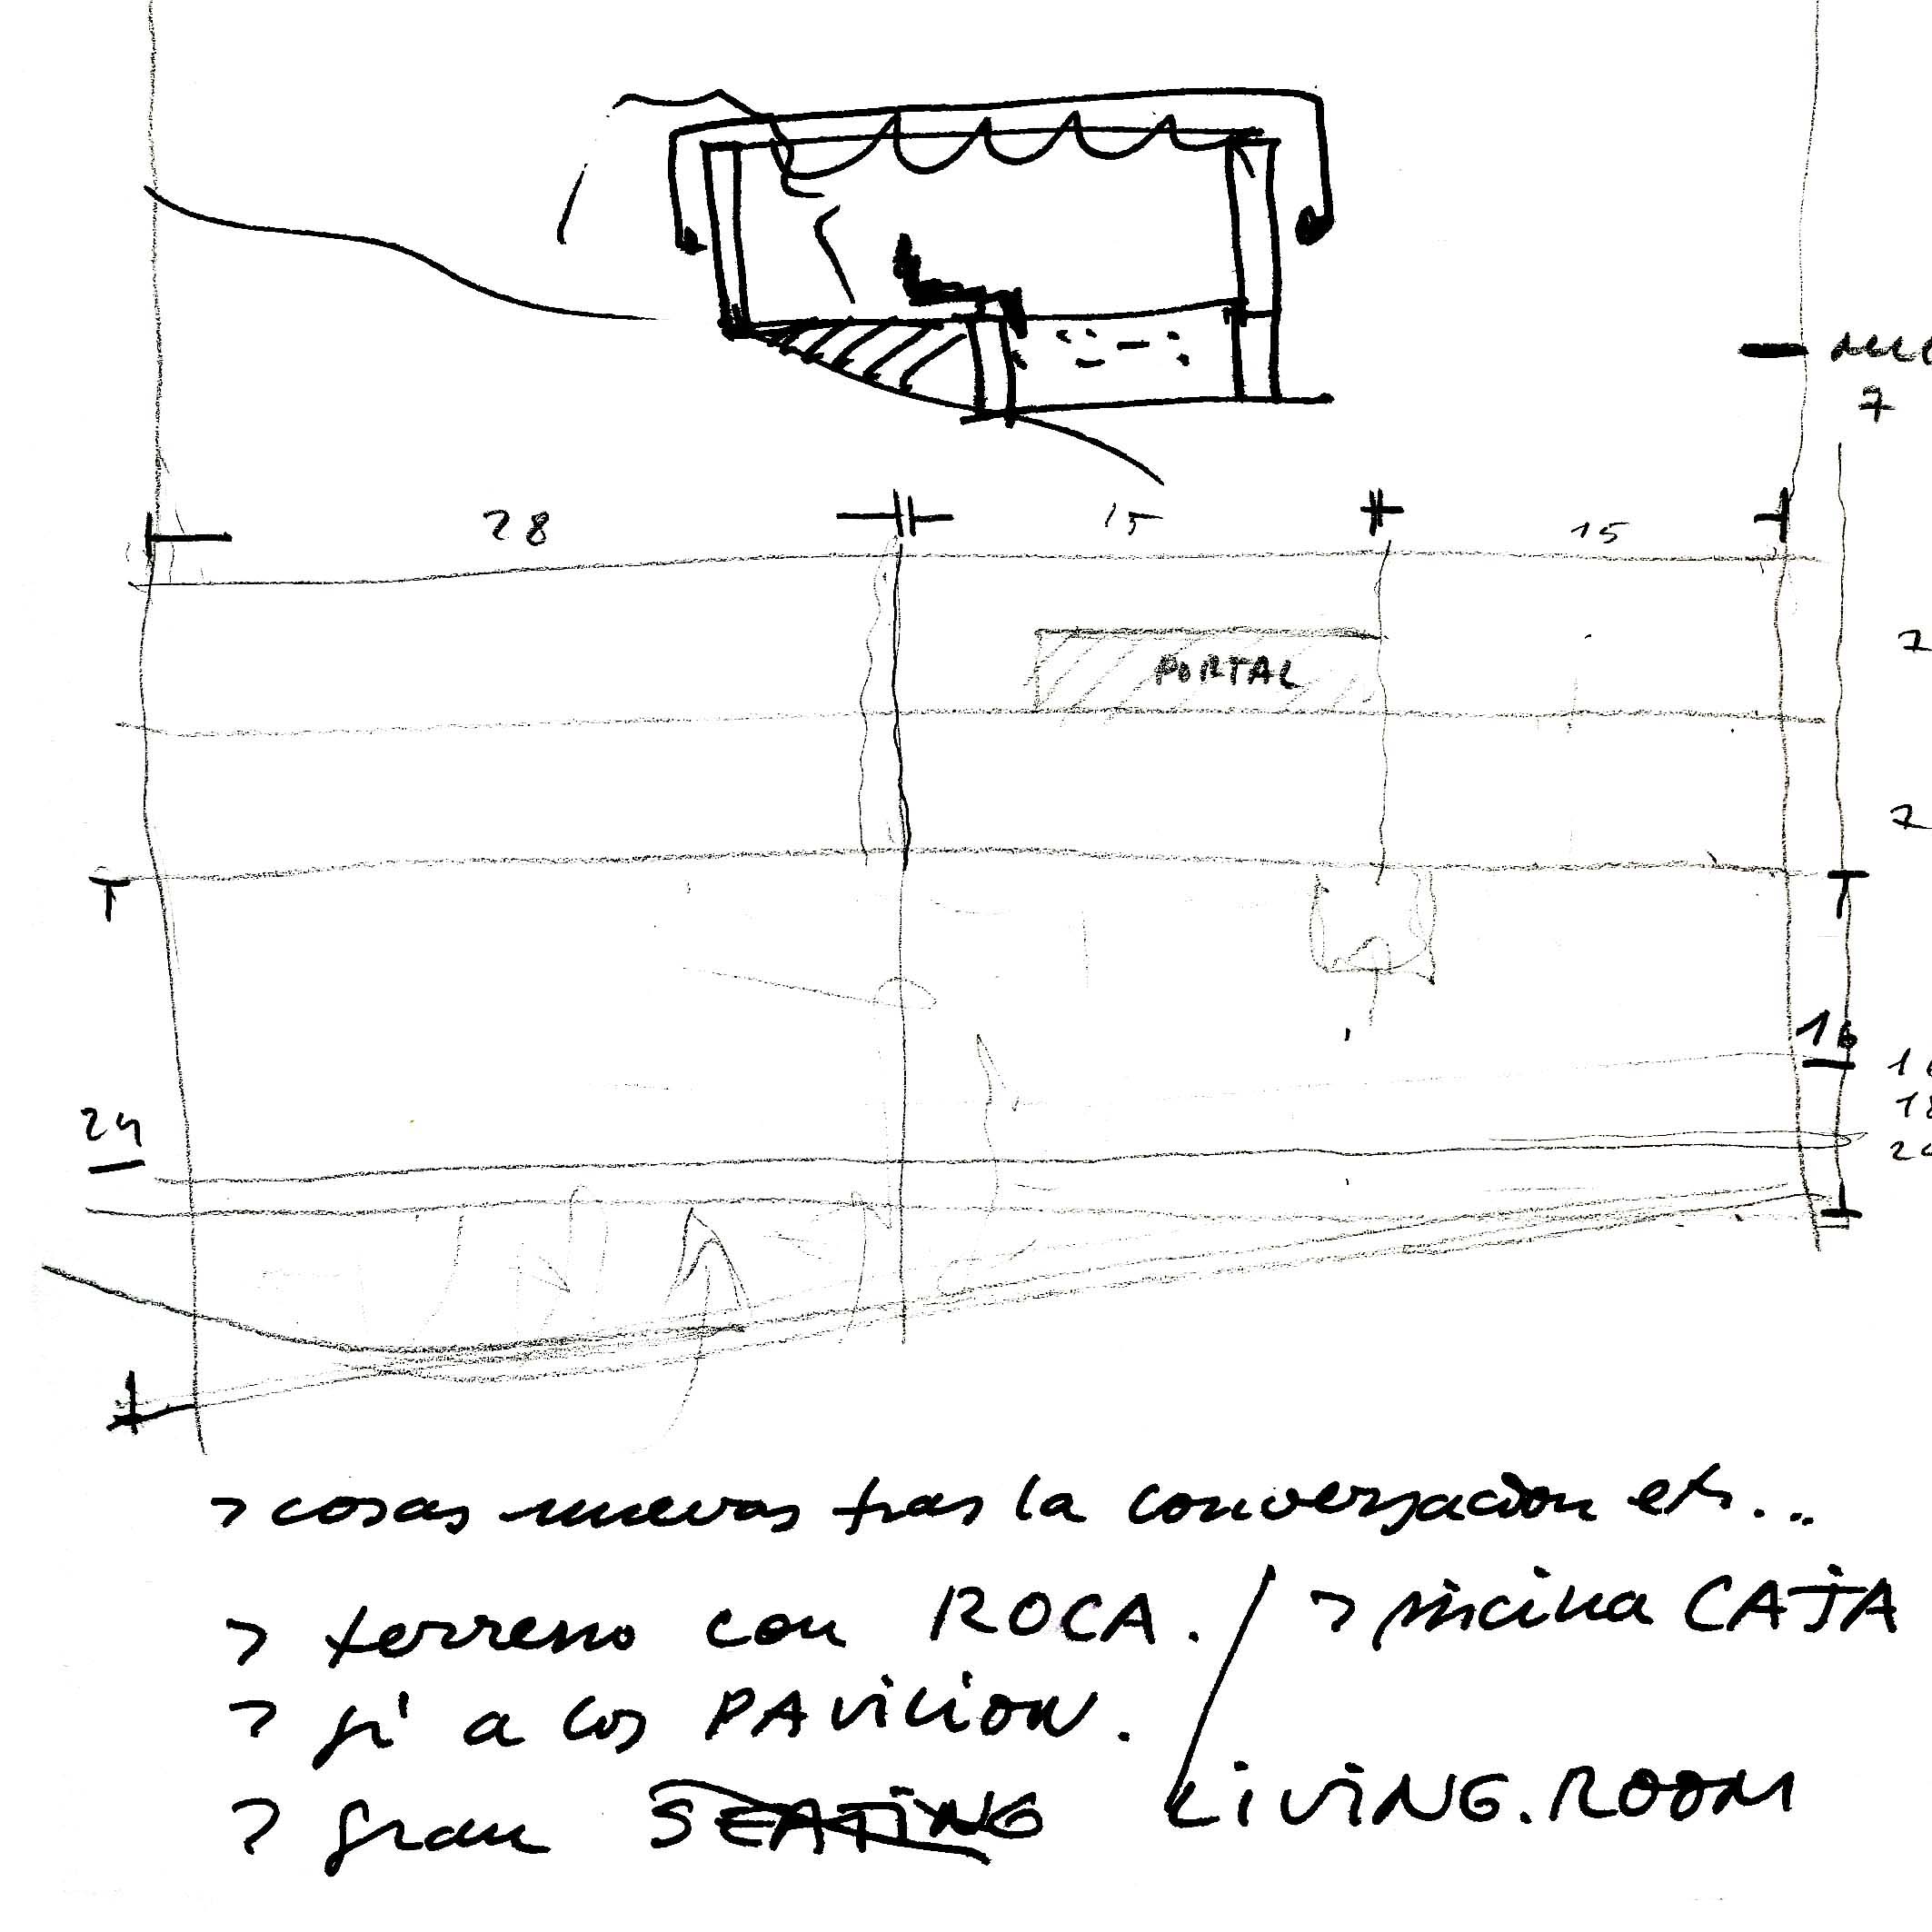 7
28 15 15
PORTAL
7
7
16
24
> cosas nuevas tras la conversacion etc...
> terreno con ROCA. / > piscina CAJA
> si a los PAVILION.
> gran SEATING LIVING.ROOM